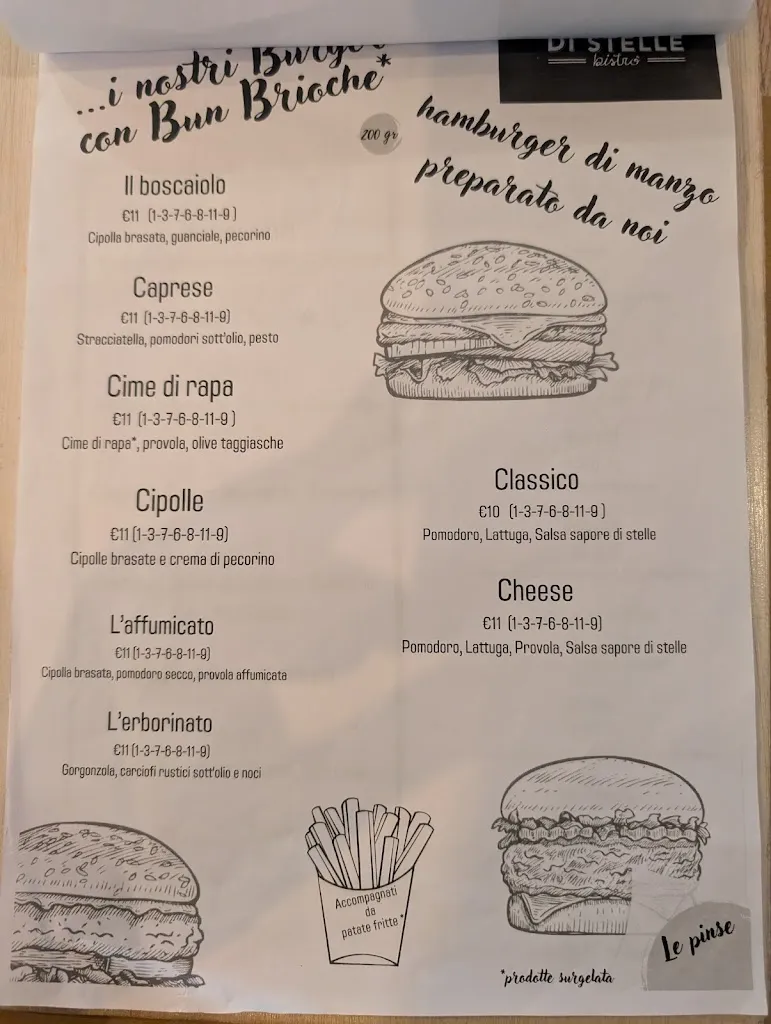 ...i nostri Burger
con Bun Brioche*
DI STELLE
bistro
200 gr
hamburger di manzo
preparato da noi
Il boscaiolo
€11 (1-3-7-6-8-11-9 )
Cipolla brasata, guanciale, pecorino
Caprese
€11 (1-3-7-6-8-11-9)
Stracciatella, pomodori sott'olio, pesto
Cime di rapa
€11 (1-3-7-6-8-11-9 )
Cime di rapa*, provola, olive taggiasche
Cipolle
€11 (1-3-7-6-8-11-9)
Cipolle brasate e crema di pecorino
L'affumicato
€11 (1-3-7-6-8-11-9)
Cipolla brasata, pomodoro secco, provola affumicata
L'erborinato
€11 (1-3-7-6-8-11-9)
Gorgonzola, carciofi rustici sott'olio e noci
Classico
€10 (1-3-7-6-8-11-9 )
Pomodoro, Lattuga, Salsa sapore di stelle
Cheese
€11 (1-3-7-6-8-11-9)
Pomodoro, Lattuga, Provola, Salsa sapore di stelle
Accompagnati
da
patate fritte *
Le pinse
*prodotte surgelata